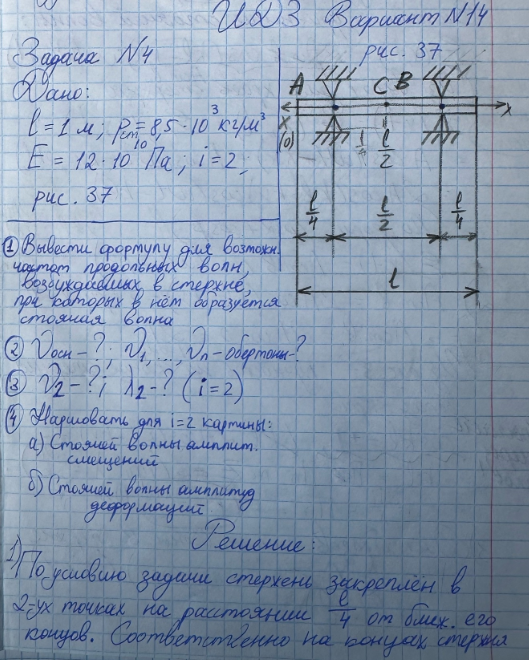 ИДЗ Вариант N14
Задача N4
рис. 37
Дано:
l = 1 м; ρст = 8,5 · 10³ кг/м³
E = 12 · 10¹⁰ Па; i = 2;
рис. 37
A C B
x
(0)
l/2
x
l/4 l/2 l/4
l
① Вывести формулу для возможн.
частот продольных волн,
возбуждаемых в стержне,
при которых в нём образуется
стоячая волна
② νосн - ?; ν₁, ..., νn - обертоны - ?
③ ν₂ - ?; λ₂ - ? (i = 2)
④ Нарисовать для i = 2 картины:
а) Стоячей волны амплит.
смещений
б) Стоячей волны амплитуд
деформаций
Решение:
1) По условию задачи стержень закреплён в
2-ух точках на расстоянии l/4 от ближ. его
концов. Соответственно на концах стержня